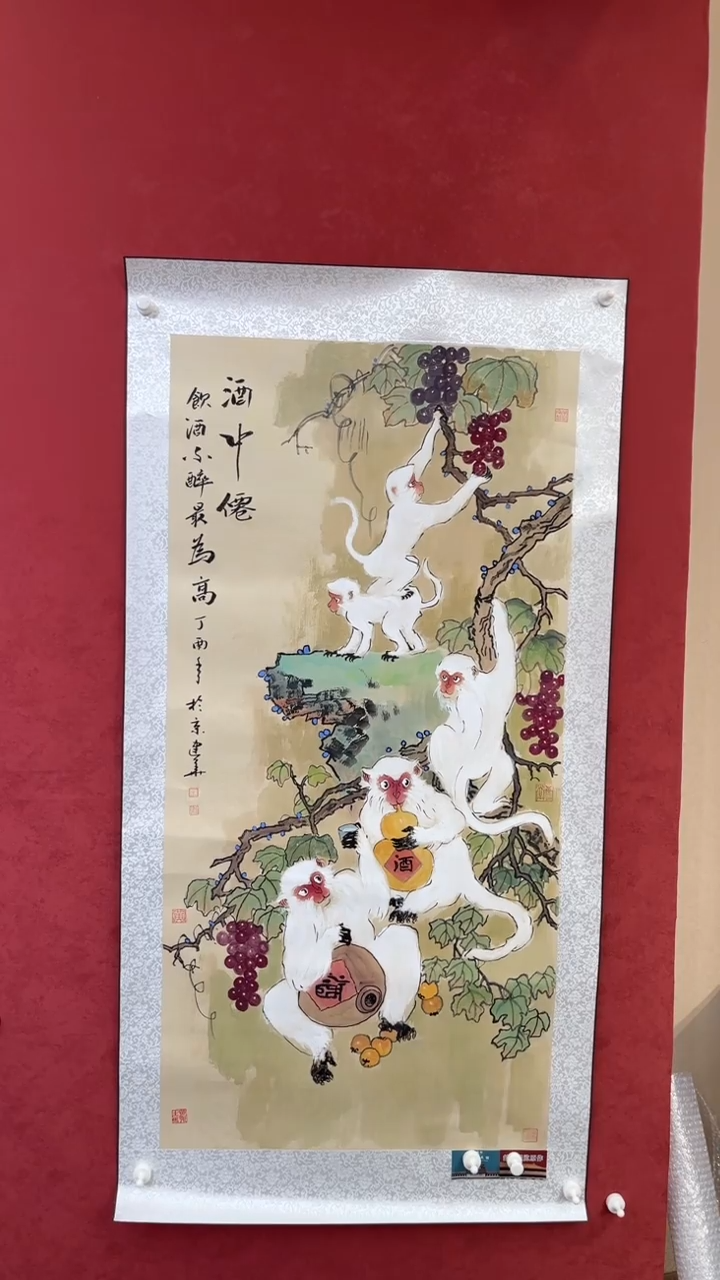 酒中僊
飲酒不醉最為高
丁酉年於京建華
酒
酒